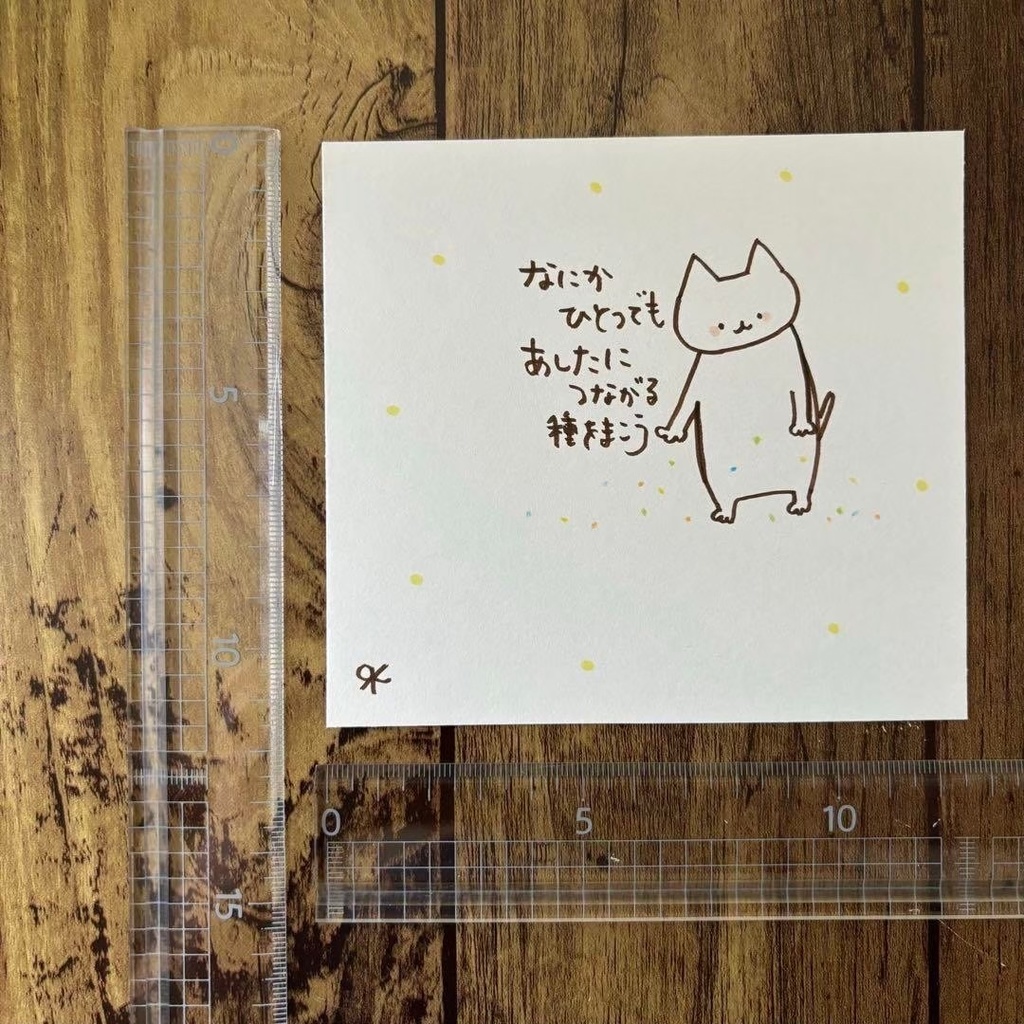 なにか
ひとつでも
あしたに
つながる
種をまこう
0
5
10
15
0
5
10